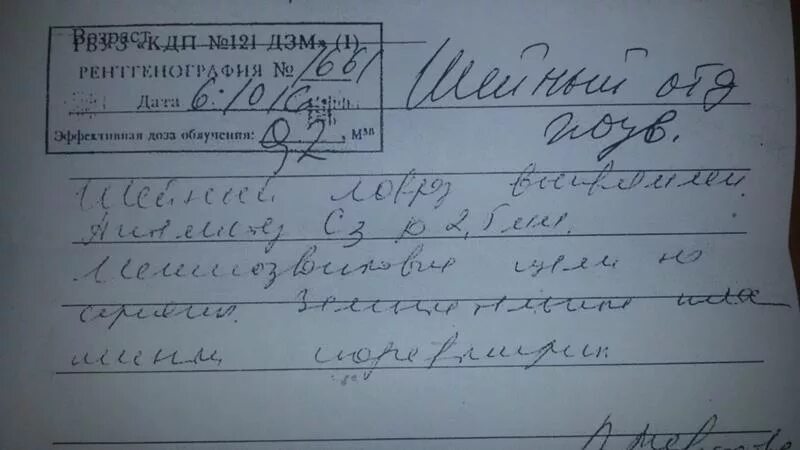 Возраст
ГБУЗ «КДП №121 ДЗМ» (1)
РЕНТГЕНОГРАФИЯ № 1661
Дата 6.10.16
Эффективная доза облучения: 0,2, мзв
Шейный отд
позв.
Шейный лордоз выпрямлен.
Антелистез C3 до 2,5мм.
Межпозвонковые щели не
сужены. Замыкательные пла
стинки